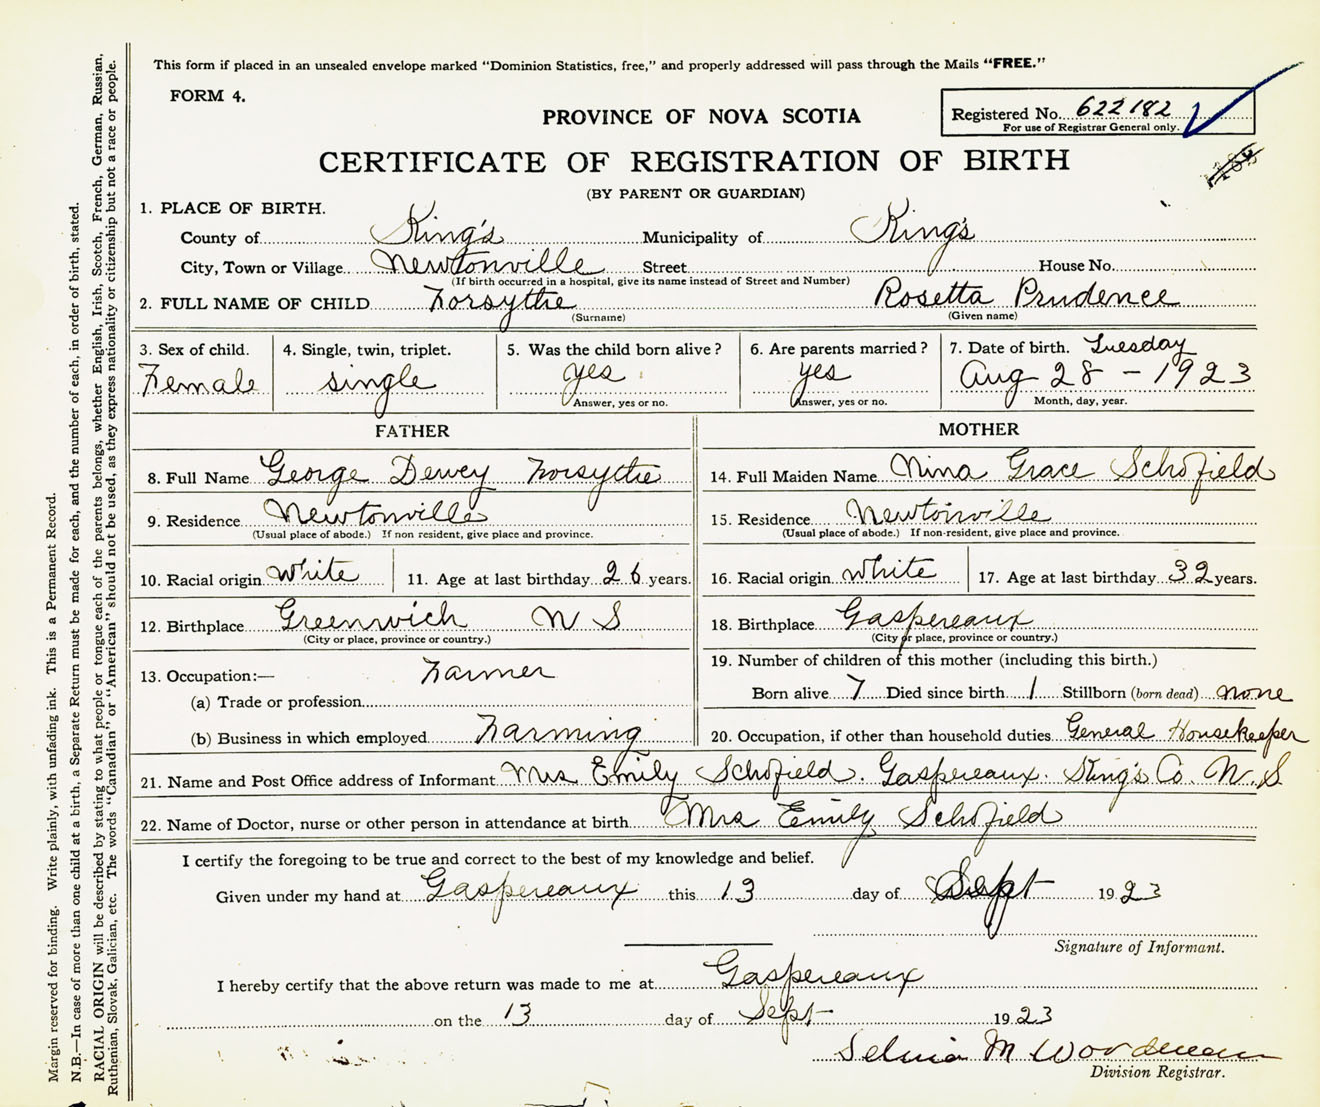 This form if placed in an unsealed envelope marked "Dominion Statistics, free," and properly addressed will pass through the Mails "FREE."
FORM 4.
Registered No. 622182
For use of Registrar General only.
PROVINCE OF NOVA SCOTIA
CERTIFICATE OF REGISTRATION OF BIRTH
(BY PARENT OR GUARDIAN)
1. PLACE OF BIRTH.
County of King's Municipality of King's
City, Town or Village Newtonville Street House No.
(If birth occurred in a hospital, give its name instead of Street and Number)
2. FULL NAME OF CHILD Forsythe Rosetta Prudence
(Surname) (Given name)
3. Sex of child. 4. Single, twin, triplet. 5. Was the child born alive? 6. Are parents married? 7. Date of birth. Tuesday
Female single yes yes Aug 28 - 1923
Answer, yes or no. Answer, yes or no. Month, day, year.
FATHER
8. Full Name George Dewey Forsythe
9. Residence Newtonville
(Usual place of abode.) If non resident, give place and province.
10. Racial origin White 11. Age at last birthday 26 years.
12. Birthplace Greenwich N S
(City or place, province or country.)
13. Occupation:— Farmer
(a) Trade or profession
(b) Business in which employed Farming
MOTHER
14. Full Maiden Name Nina Grace Schofield
15. Residence Newtonville
(Usual place of abode.) If non-resident, give place and province.
16. Racial origin White 17. Age at last birthday 32 years.
18. Birthplace Gaspereaux
(City or place, province or country.)
19. Number of children of this mother (including this birth.)
Born alive 7 Died since birth 1 Stillborn (born dead) none
20. Occupation, if other than household duties General Housekeeper
21. Name and Post Office address of Informant Mrs Emily Schofield. Gaspereaux. King's Co. N. S
22. Name of Doctor, nurse or other person in attendance at birth Mrs Emily Schofield
I certify the foregoing to be true and correct to the best of my knowledge and belief.
Given under my hand at Gaspereaux this 13 day of Sept 1923
Signature of Informant.
I hereby certify that the above return was made to me at Gaspereaux
on the 13 day of Sept 1923
M Woodman
Division Registrar.
Margin reserved for binding. Write plainly, with unfading ink. This is a Permanent Record.
N.B.—In case of more than one child at a birth, a Separate Return must be made for each, and the number of each, in order of birth, stated.
RACIAL ORIGIN will be described by stating to what people or tongue each of the parents belongs, whether English, Irish, Scotch, French, German, Russian,
Ruthenian, Slovak, Galician, etc. The words "Canadian" or "American" should not be used, as they express nationality or citizenship but not a race or people.